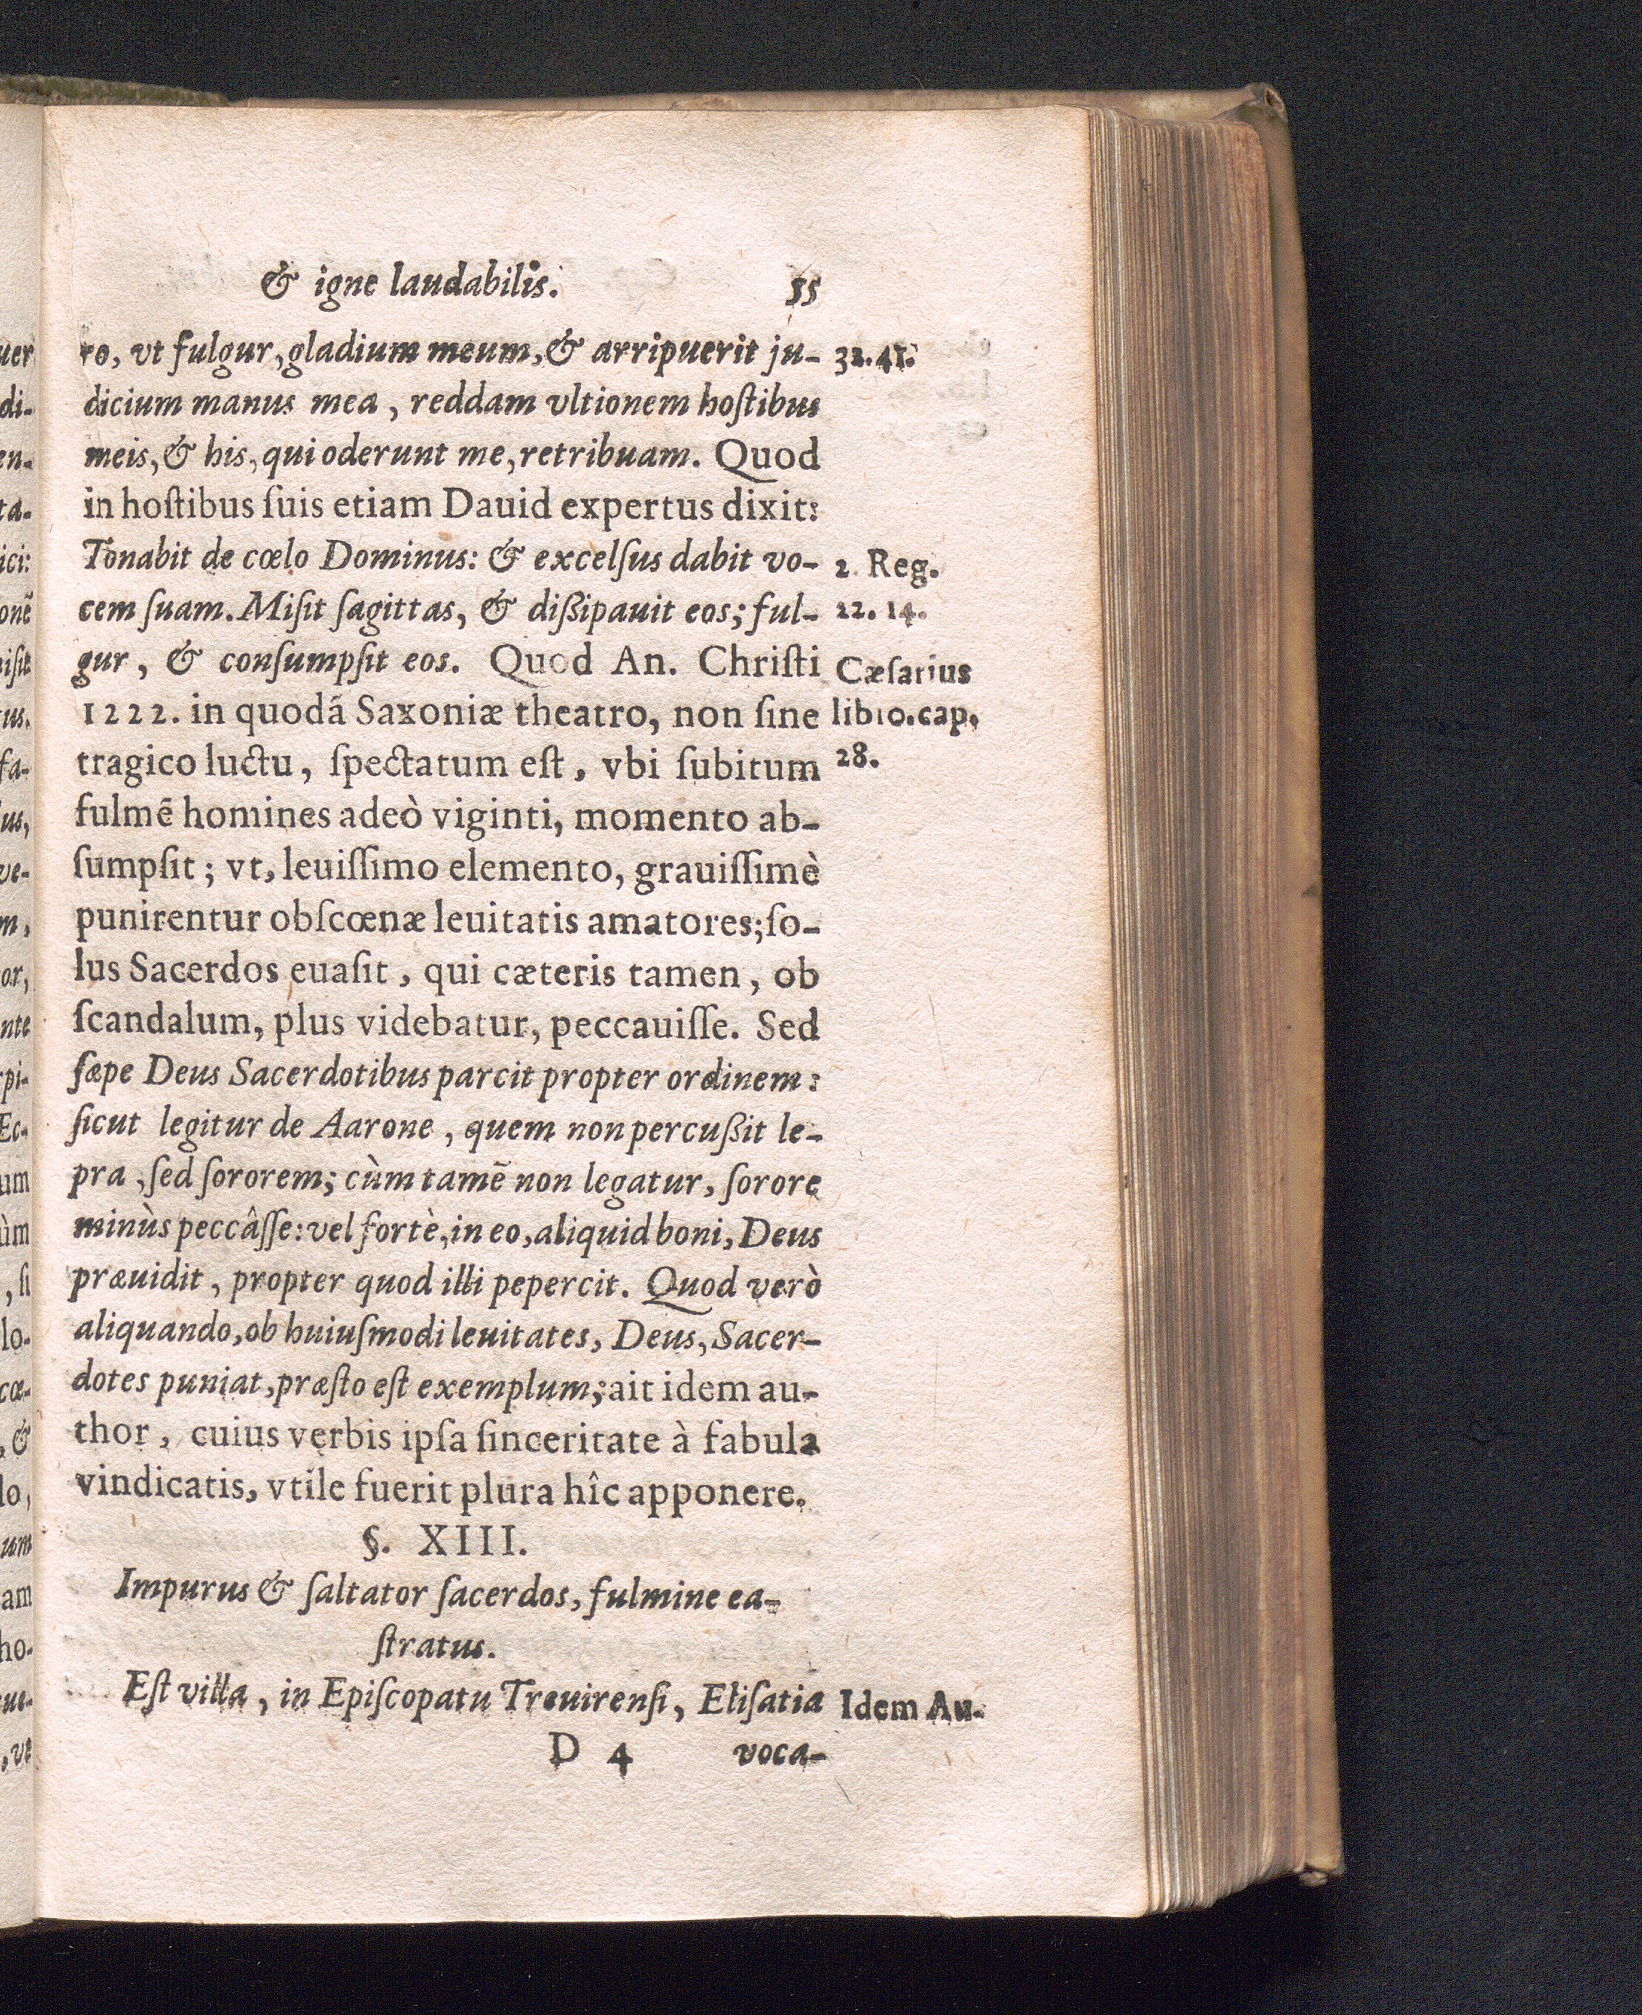 & igne laudabilis. 55
ro, vt fulgur, gladium meum, & arripuerit ju- 32.41.
dicium manus mea, reddam vltionem hoſtibus
meis, & his, qui oderunt me, retribuam. Quod
in hoſtibus ſuis etiam Dauid expertus dixit:
Tonabit de cœlo Dominus: & excelſus dabit vo- 2 Reg.
cem ſuam. Miſit ſagittas, & dißipauit eos; ful- 22. 14.
gur, & conſumpſit eos. Quod An. Chriſti Cæſarius
1222. in quodã Saxoniæ theatro, non ſine lib10.cap.
tragico luctu, ſpectatum eſt, vbi ſubitum 28.
fulmẽ homines adeò viginti, momento ab-
ſumpſit; vt, leuiſſimo elemento, grauiſſimè
punirentur obſcœnæ leuitatis amatores; ſo-
lus Sacerdos euaſit, qui cæteris tamen, ob
ſcandalum, plus videbatur, peccauiſſe. Sed
ſæpe Deus Sacerdotibus parcit propter ordinem:
ſicut legitur de Aarone, quem non percußit le-
pra, ſed ſororem; cùm tamẽ non legatur, ſorore
minùs peccâſſe: vel fortè, in eo, aliquid boni, Deus
præuidit, propter quod illi pepercit. Quod verò
aliquando, ob huiuſmodi leuitates, Deus, Sacer-
dotes puniat, præſto eſt exemplum; ait idem au-
thor, cuius verbis ipſa ſinceritate à fabula
vindicatis, vtile fuerit plura hîc apponere.
§. XIII.
Impurus & ſaltator ſacerdos, fulmine ca-
ſtratus.
Eſt villa, in Epiſcopatu Treuirenſi, Eliſatia Idem Au-
D 4 voca-